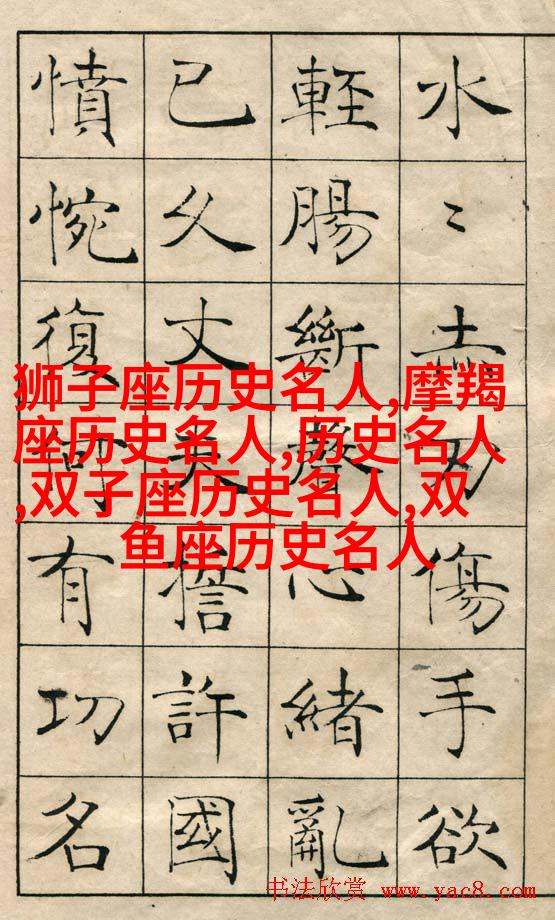 水〻赤刃傷手欲
輕腸斷聲心緒亂
已久丈夫誓許國
憤惋復何有功名
狮子座历史名人,摩羯
座历史名人,历史名人
,双子座历史名人,双
鱼座历史名人
书法欣赏 www.yac8.com